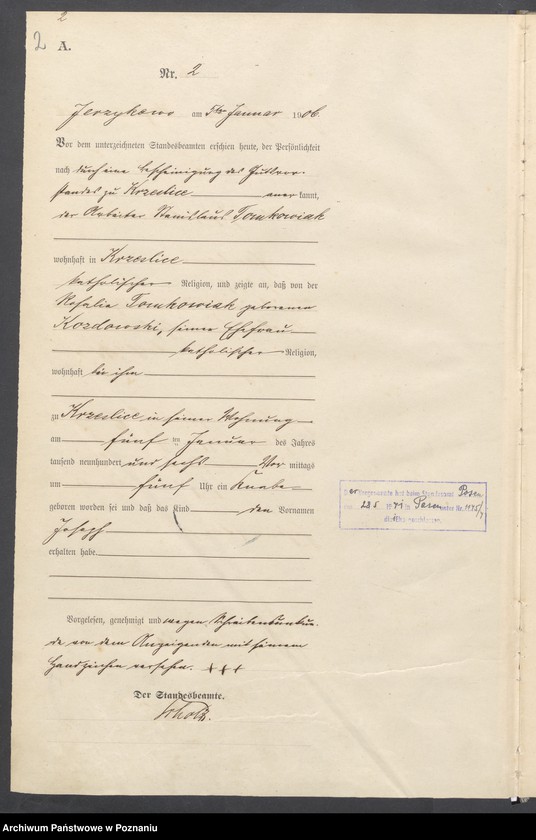 2
2 A.
Nr. 2
Jerzykowo am 5ten Januar 1906.
Vor dem unterzeichneten Standesbeamten erschien heute, der Persönlichkeit
nach durch eine Bescheinigung des Gutsvor-
standes zu Krzeslice anerkannt,
der Arbeiter Stanislaus Tomkowiak
wohnhaft in Krzeslice
katholischer Religion, und zeigte an, daß von der
Rosalie Tomkowiak geborenen
Kozdowski, seiner Ehefrau
katholischer Religion,
wohnhaft bei ihm
zu Krzeslice in seiner Wohnung
am fünften Januar des Jahres
tausend neunhundert und sechs Vormittags
um fünf Uhr ein Knabe
geboren worden sei und daß das Kind den Vornamen
Joseph
erhalten habe
Vorgelesen, genehmigt und wegen Schreibensunkun-
de von dem Anzeigenden mit seinem
Handzeichen versehen. +++
Der Standesbeamte.
Scholz.
hat beim Standesamt Posen
28 5 1941 in Posen Nr. 1145/